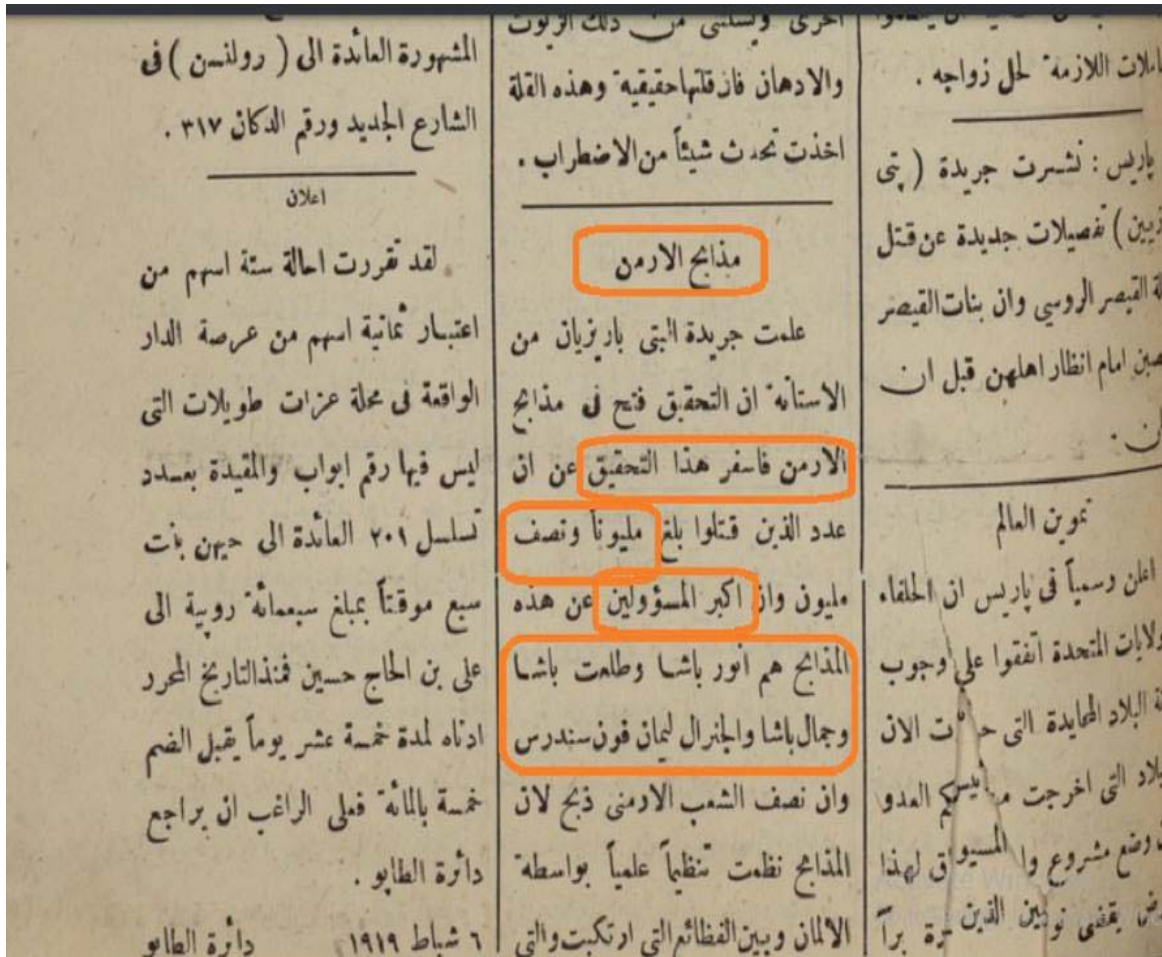 املات اللازمة لحل زواجه .
پاريس : نشرت جريدة ( پتى
تفصيلات جديدة عن قتل
القيصر الروسي وان بنات القيصر
امام انظار اهلهن قبل ان
تموين العالم
اعلن رسمياً فى پاريس ان الحلفاء
ولايات المتحدة اتفقوا على وجوب
البلاد المحايدة التى الان
التى اخرجت العدو
وضع مشروع لهذا
يقضى الذين
اخرى ويستثنى من ذلك الزيوت
والادهان فان قلتها حقيقية وهذه القلة
اخذت تحدث شيئاً من الاضطراب .
مذابح الارمن
علمت جريدة البتى باريزيان من
الاستانة ان التحقيق فتح فى مذابح
الارمن فاسفر هذا التحقيق عن ان
عدد الذين قتلوا بلغ مليوناً ونصف
مليون وان اكبر المسؤولين عن هذه
المذابح هم انور باشا وطلعت باشا
وجمال باشا والجنرال ليمان فون سندرس
وان نصف الشعب الارمنى ذبح لان
المذابح نظمت تنظيماً علمياً بواسطة
الالمان وبين الفظائع التى ارتكبت والتى
المشهورة العائدة الى ( رولنسن ) فى
الشارع الجديد ورقم الدكان ٣١٧ .
اعلان
لقد تقررت احالة ستة اسهم من
اعتبار ثمانية اسهم من عرصة الدار
الواقعة فى محلة عزات طويلات التى
ليس فيها رقم ابواب والمقيدة بعدد
تسلسل ٢٠١ العائدة الى بنت
سبع موقتاً بمبلغ سبعمائة روبية الى
على بن الحاج حسين فمنذ التاريخ المحرر
ادناه لمدة خمسة عشر يوماً يقبل الضم
خمسة بالمائة فعلى الراغب ان يراجع
دائرة الطابو .
٦ شباط ١٩١٩ دائرة الطابو